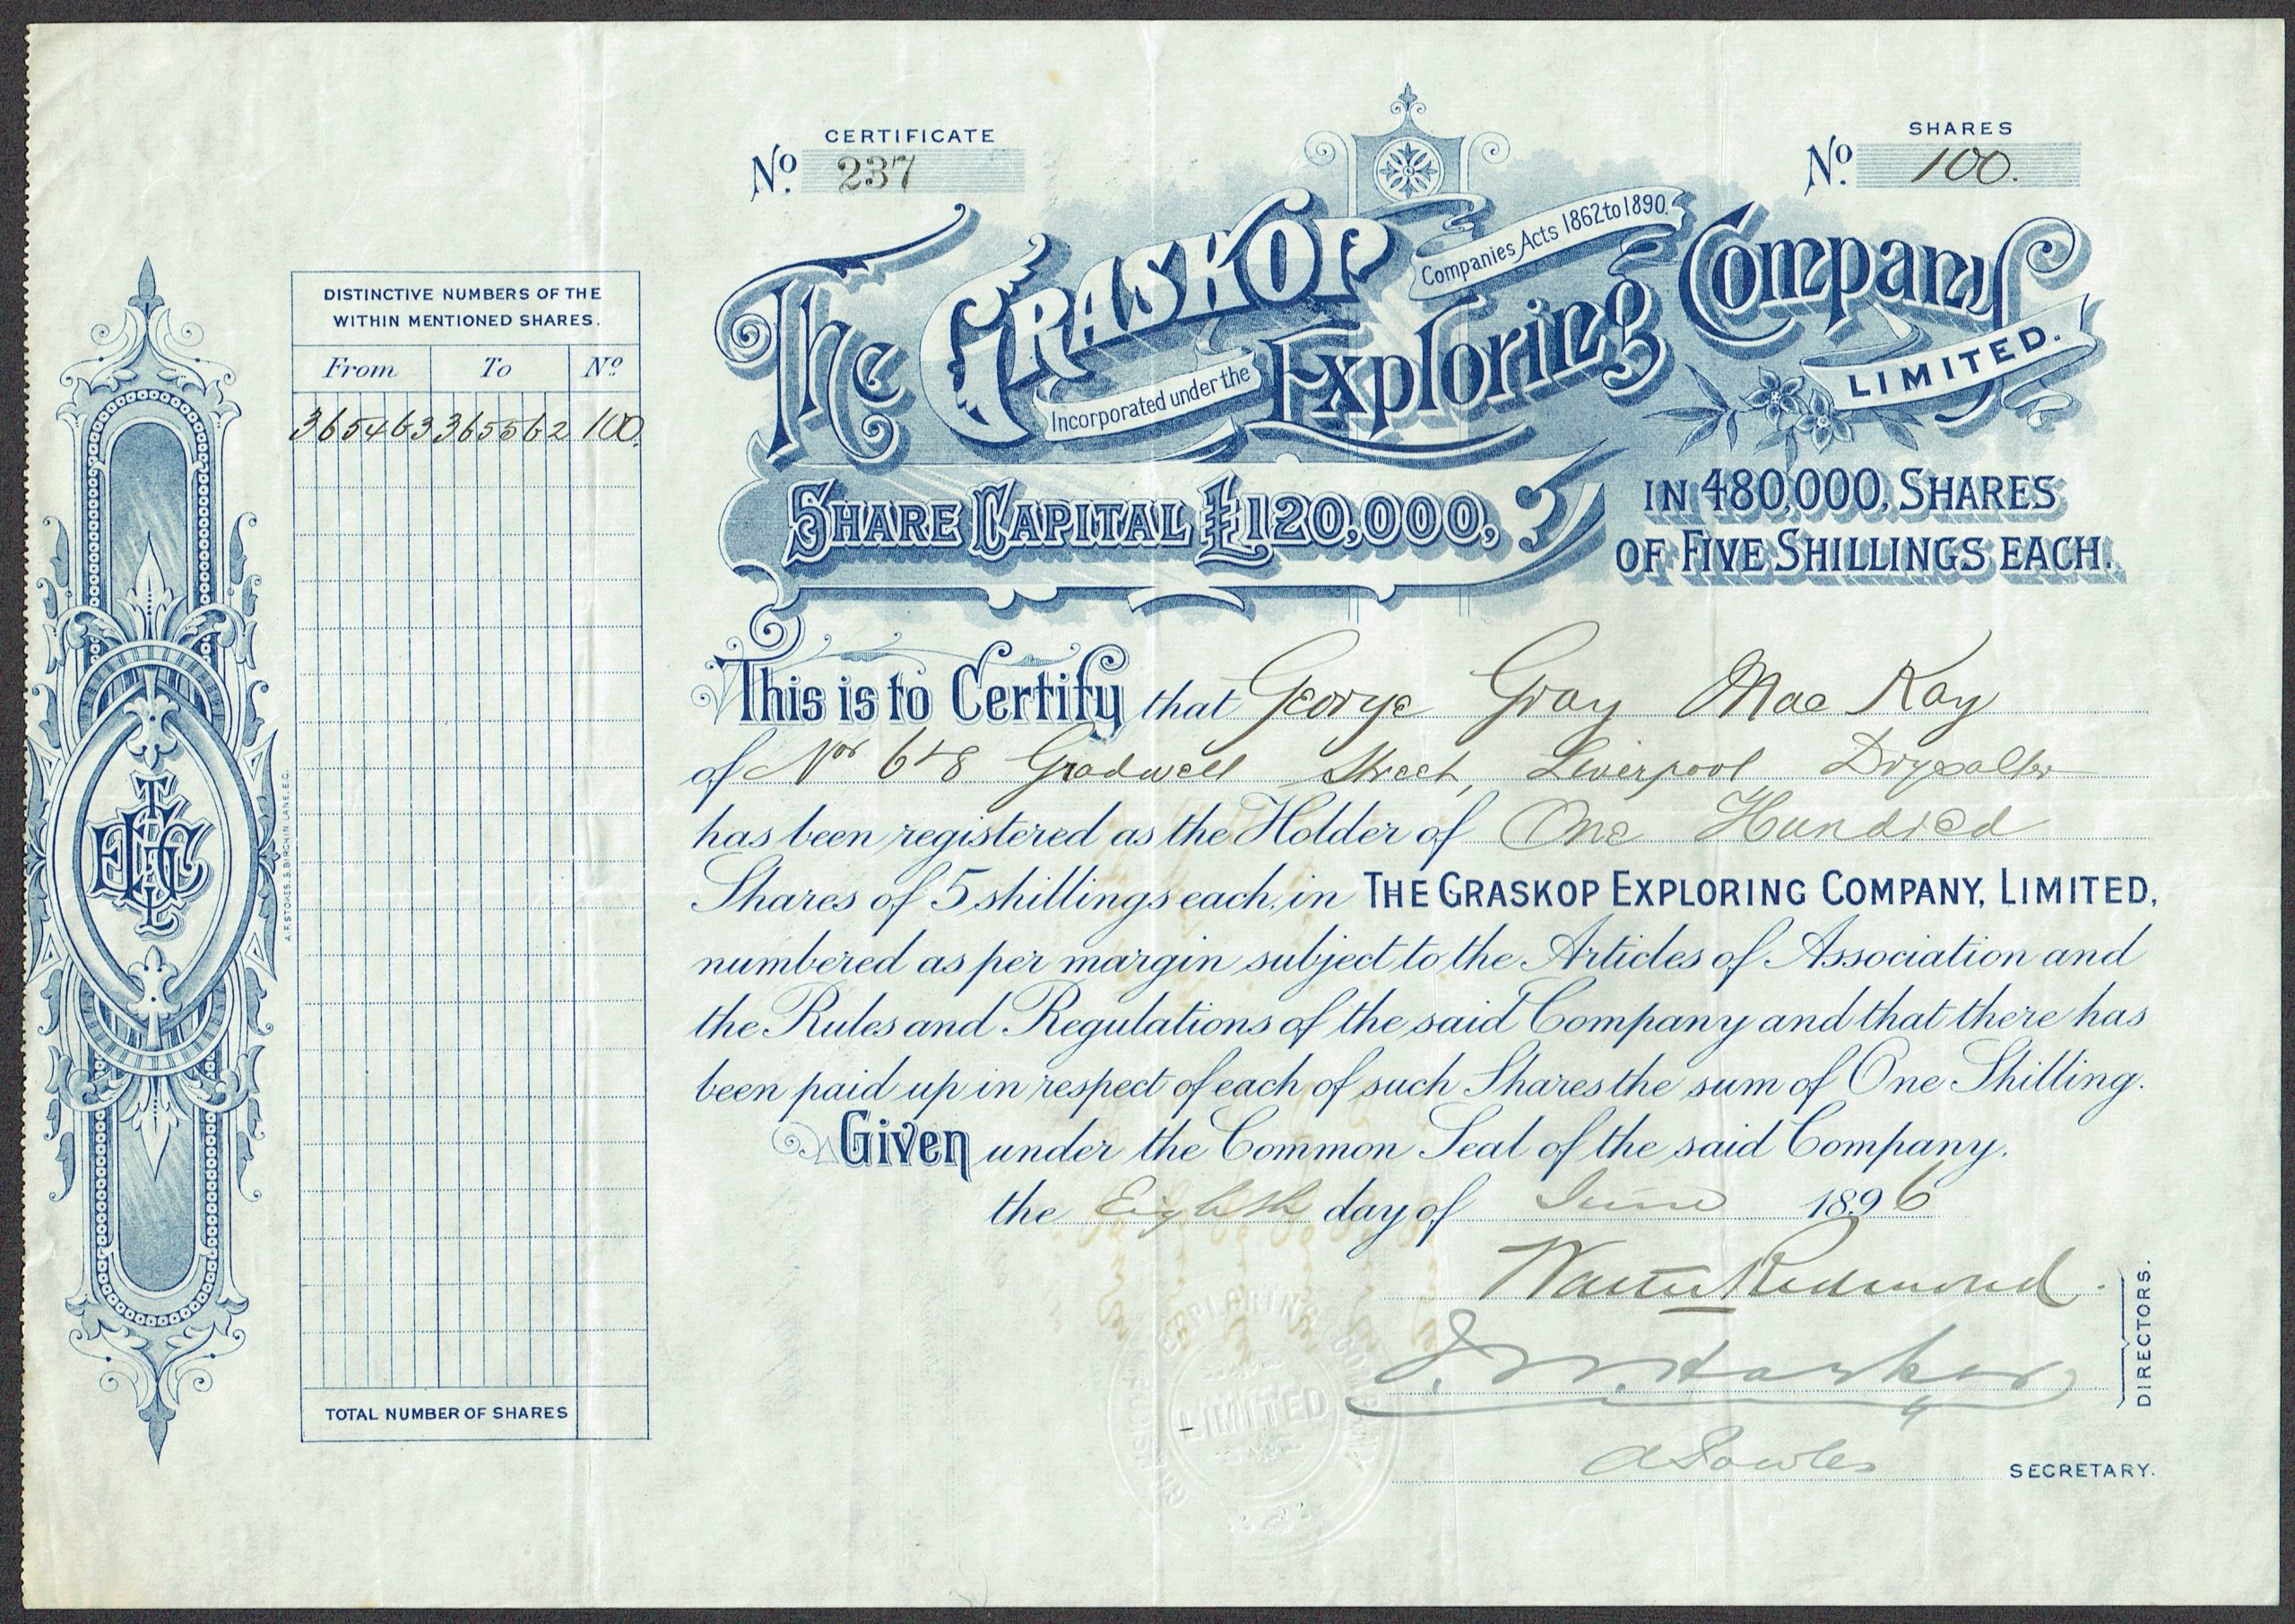 CERTIFICATE
No. 237
SHARES
No. 100.
The GRASKOP Exploring Company
LIMITED.
Incorporated under the Companies Acts 1862 to 1890.
SHARE CAPITAL £120,000,
IN 480,000, SHARES
OF FIVE SHILLINGS EACH.
DISTINCTIVE NUMBERS OF THE
WITHIN MENTIONED SHARES.
From To No.
365463 365562 100.
TOTAL NUMBER OF SHARES
A.F. STOKES, 5, BIRCHIN LANE, E.C.
This is to Certify that George Gray Mac Kay
of Nos 6 & 8 Gradwell Street, Liverpool Drysalter
has been registered as the Holder of One Hundred
Shares of 5 shillings each, in THE GRASKOP EXPLORING COMPANY, LIMITED,
numbered as per margin subject to the Articles of Association and
the Rules and Regulations of the said Company and that there has
been paid up in respect of each of such Shares the sum of One Shilling.
Given under the Common Seal of the said Company.
the Eighth day of June 1896
Walter Redmond.
DIRECTORS.
SECRETARY.
EXPLORING COMPANY
LIMITED